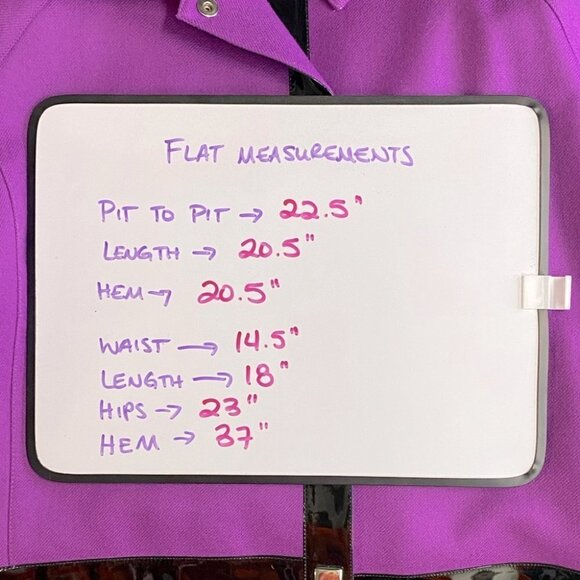 FLAT MEASUREMENTS
PIT TO PIT → 22.5"
LENGTH → 20.5"
HEM → 20.5"
WAIST → 14.5"
LENGTH → 18"
HIPS → 23"
HEM → 37"